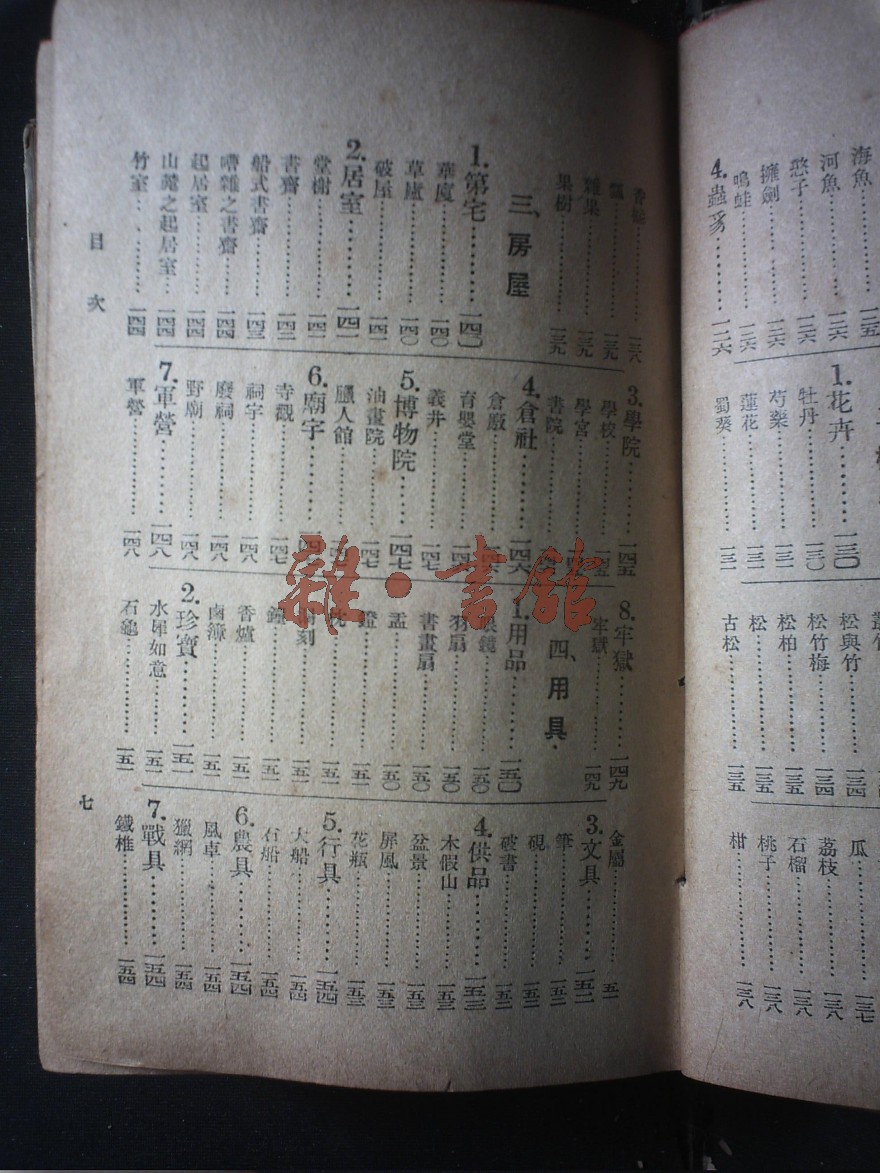 海魚………
河魚………一二六
憨子………一二六
擁劍………一二六
鳴蛙………一二六
4.蟲豸………一二六
1.花卉………一三〇
牡丹………一三〇
芍藥………一三一
蓮花………一三一
蜀葵………一三一
松與竹………一三四
松竹梅………一三四
松柏………一三五
松………一三五
古松………一三五
瓜………一三七
荔枝………一三八
石榴………一三八
桃子………一三八
柑………一三八
………一三八
………一三九
雜果………一三九
果樹………一三九
三、房屋
1.第宅………一四〇
華廈………一四〇
草廬………一四〇
破屋………一四一
2.居室………一四一
堂榭………一四一
書齋………一四二
船式書齋………一四三
嘈雜之書齋………一四四
起居室………一四四
山麓之起居室………一四四
竹室………一四四
3.學院………一四五
學校………
學宮………
書院………
4.倉社………一四六
倉廒………
育嬰堂………
義井………一四七
5.博物院………一四七
油畫院………一四七
臘人館………
6.廟宇………
寺觀………一四七
祠宇………一四八
廢祠………一四八
野廟………一四八
7.軍營………一四八
軍營………一四八
8.牢獄………一四九
牢獄………一四九
四、用具
1.用品………一五〇
眼鏡………一五〇
羽扇………一五〇
書畫扇………一五〇
盂………一五〇
鐙………一五一
枕………一五一
………一五一
鐘………一五一
香爐………一五一
鹵簿………一五一
2.珍寶………一五一
水犀如意………一五一
石龜………一五一
金屬………
3.文具………一五二
筆………一五二
硯………一五二
破書………一五二
4.供品………一五三
木假山………一五三
盆景………一五三
屏風………一五三
花瓶………一五三
5.行具………一五四
大船………一五四
石船………一五四
6.農具………一五四
風車………一五四
獵網………一五四
7.戰具………一五四
鐵椎………一五四
目次
七
雜·書館